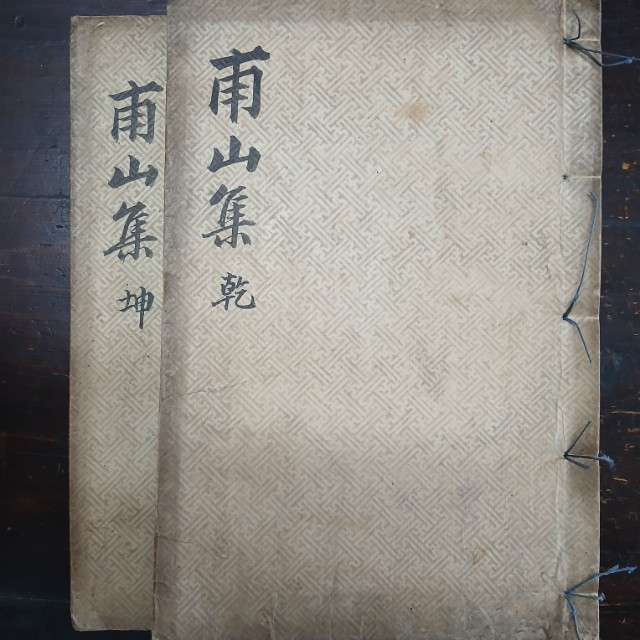 甫山集 乾
甫山集 坤